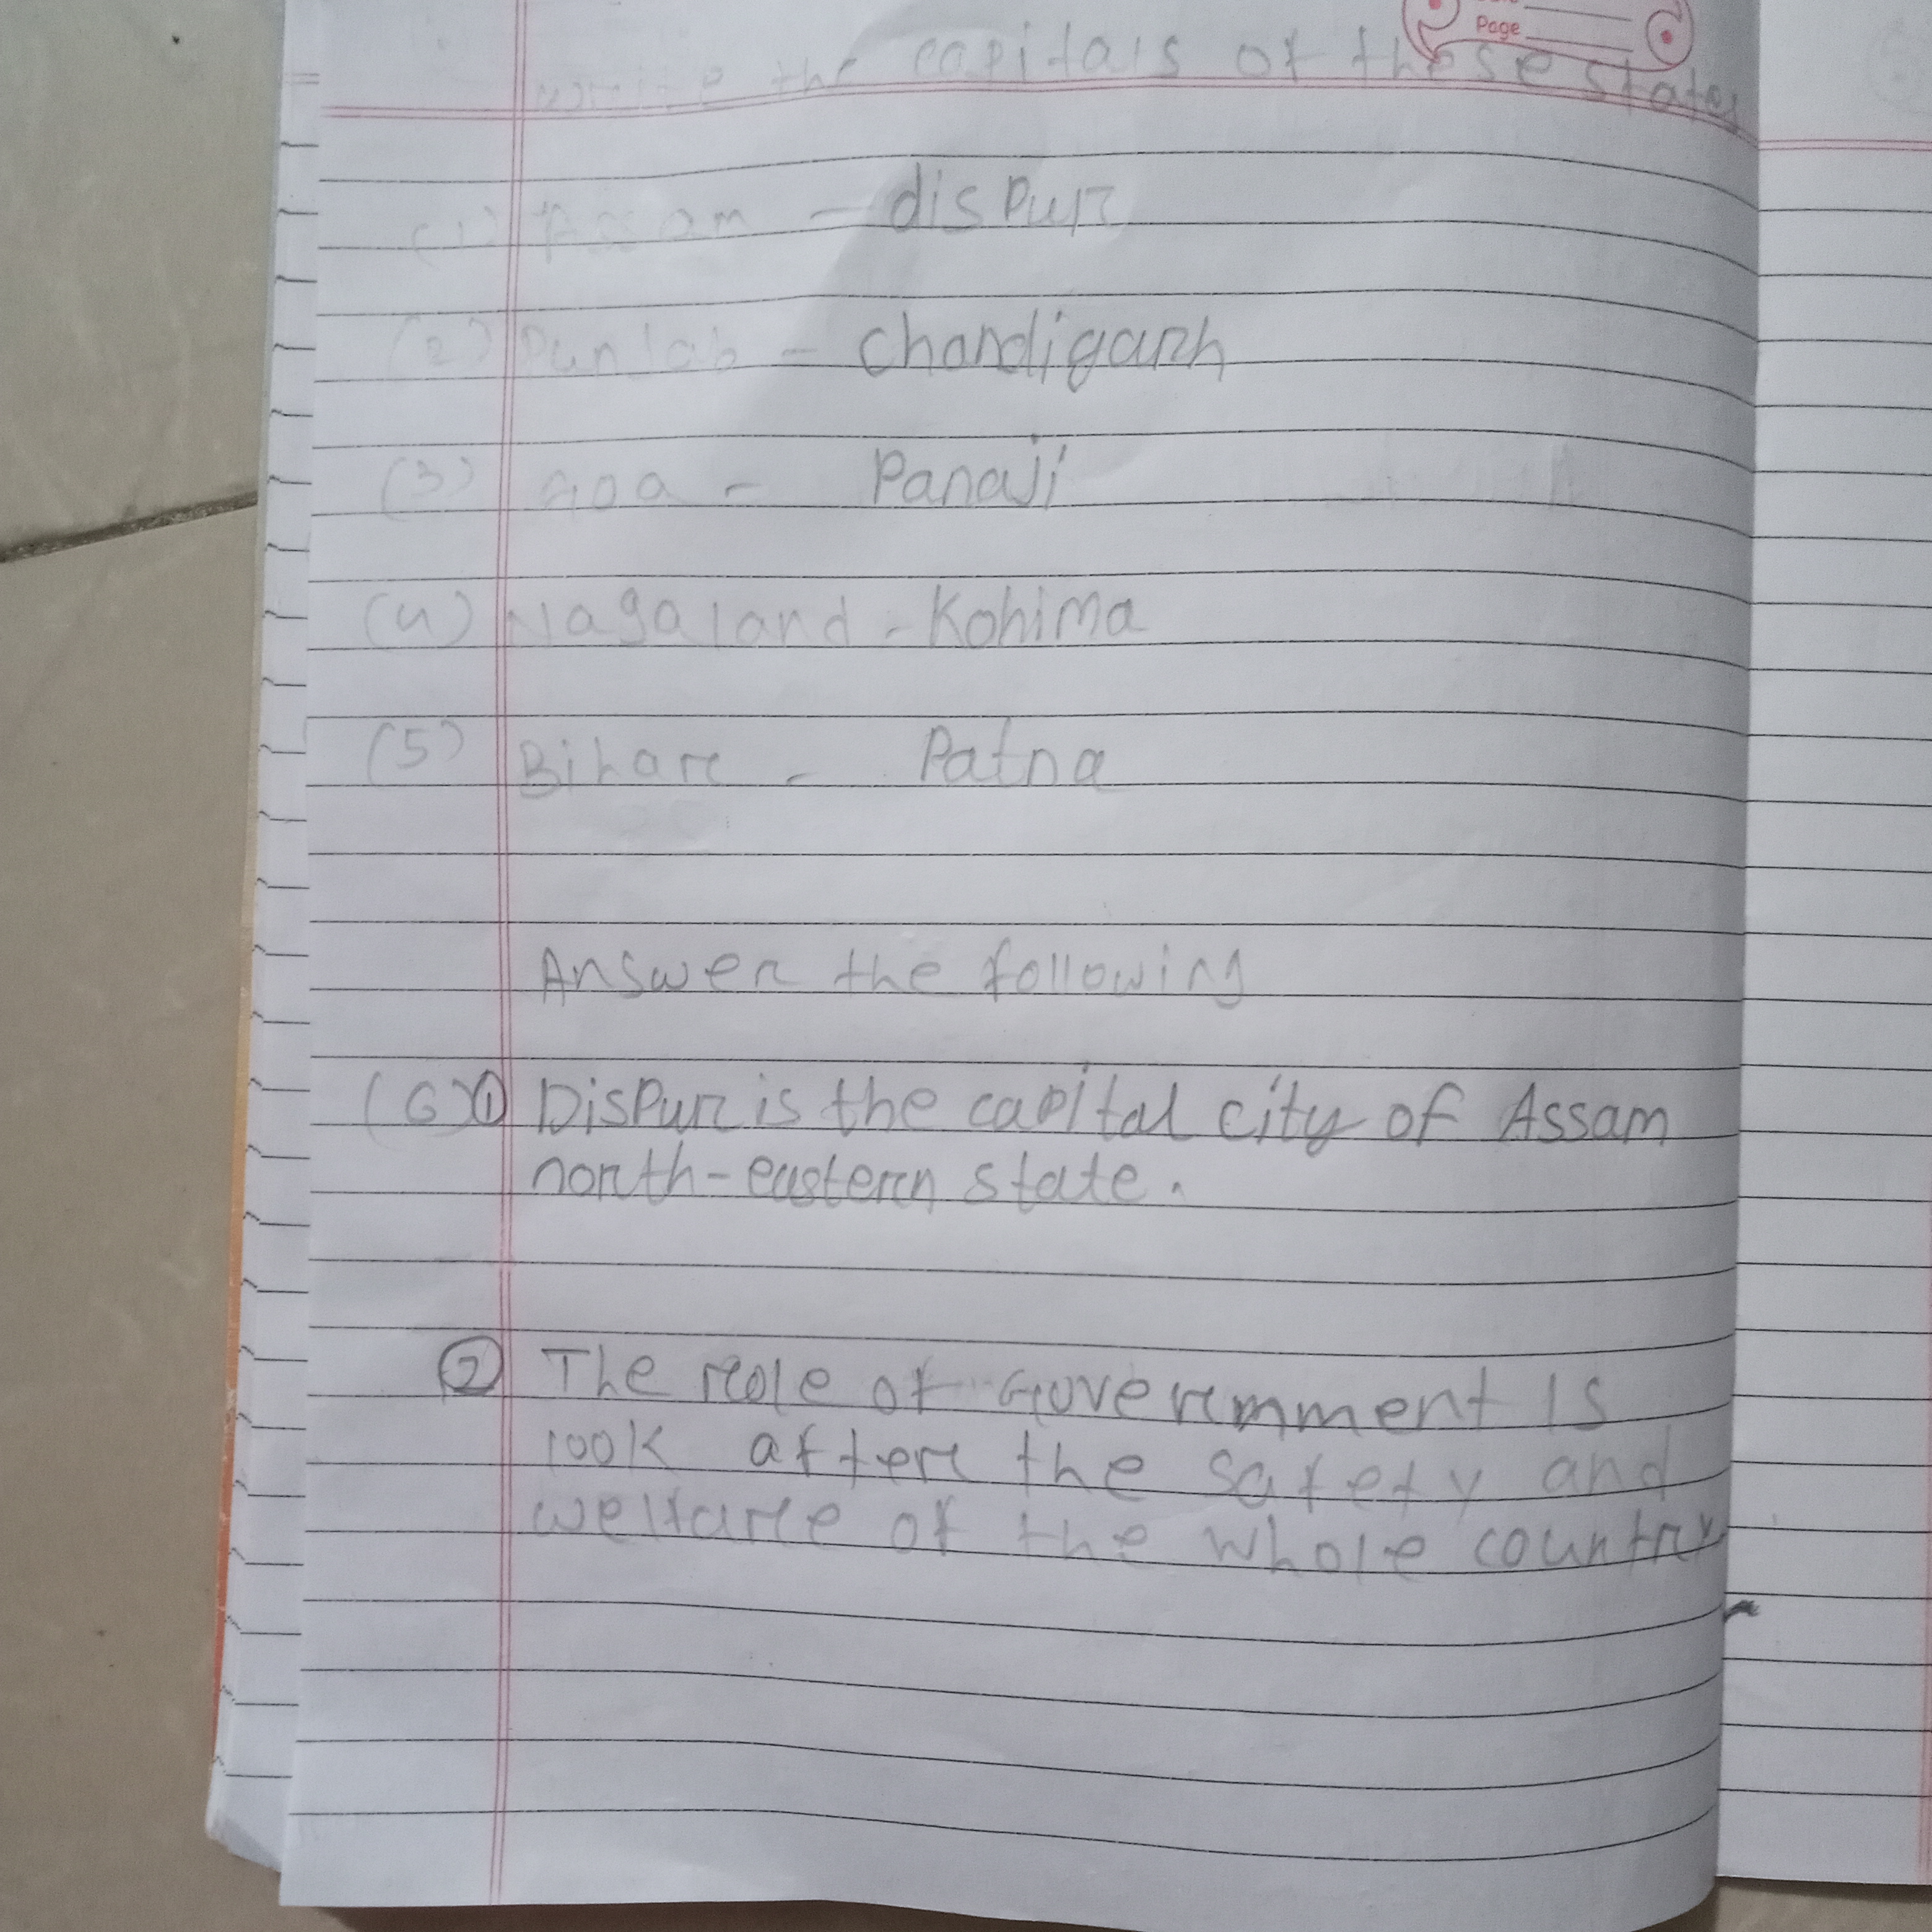 Page
write the capitals of these states
(1) Assam - dispur
(2) Punjab - Chandigarh
(3) Goa - Panaji
(4) Nagaland - Kohima
(5) Bihar - Patna
Answer the following
(6) ① Dispur is the capital city of Assam
north-eastern state.
② The role of Government is
look after the safety and
welfare of the whole country